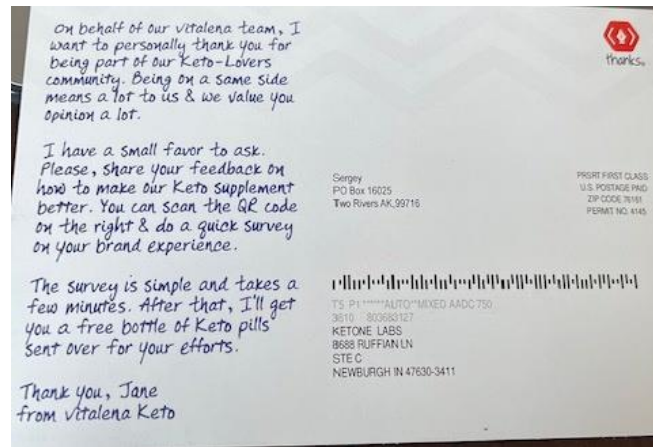 On behalf of our vitalena team, I
want to personally thank you for
being part of our Keto-Lovers
community. Being on a same side
means a lot to us & we value you
opinion a lot.
I have a small favor to ask.
Please, share your feedback on
how to make our Keto supplement
better. You can scan the QR code
on the right & do a quick survey
on your brand experience.
The survey is simple and takes a
few minutes. After that, I'll get
you a free bottle of Keto pills
sent over for your efforts.
Thank you, Jane
from vitalena Keto
thanks.
Sergey
PO Box 16025
Two Rivers AK,99716
PRSRT FIRST CLASS
U.S. POSTAGE PAID
ZIP CODE 76161
PERMIT NO. 4145
T5 P1 ******AUTO**MIXED AADC 750
3610 803683127
KETONE LABS
8688 RUFFIAN LN
STE C
NEWBURGH IN 47630-3411